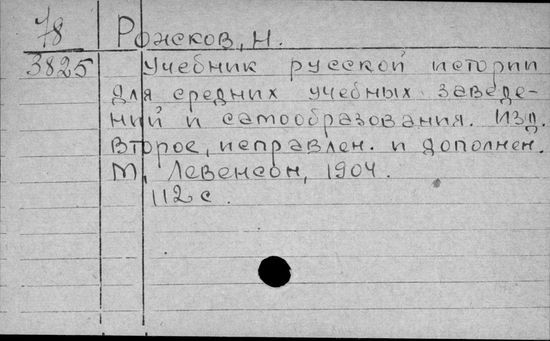 78
3825
Рожков, Н.
Учебник русской истории
для средних учебных заведе-
ний и самообразования. Изд.
второе, исправлен. и дополнен.
М, Левенсон, 1904.
112 с.